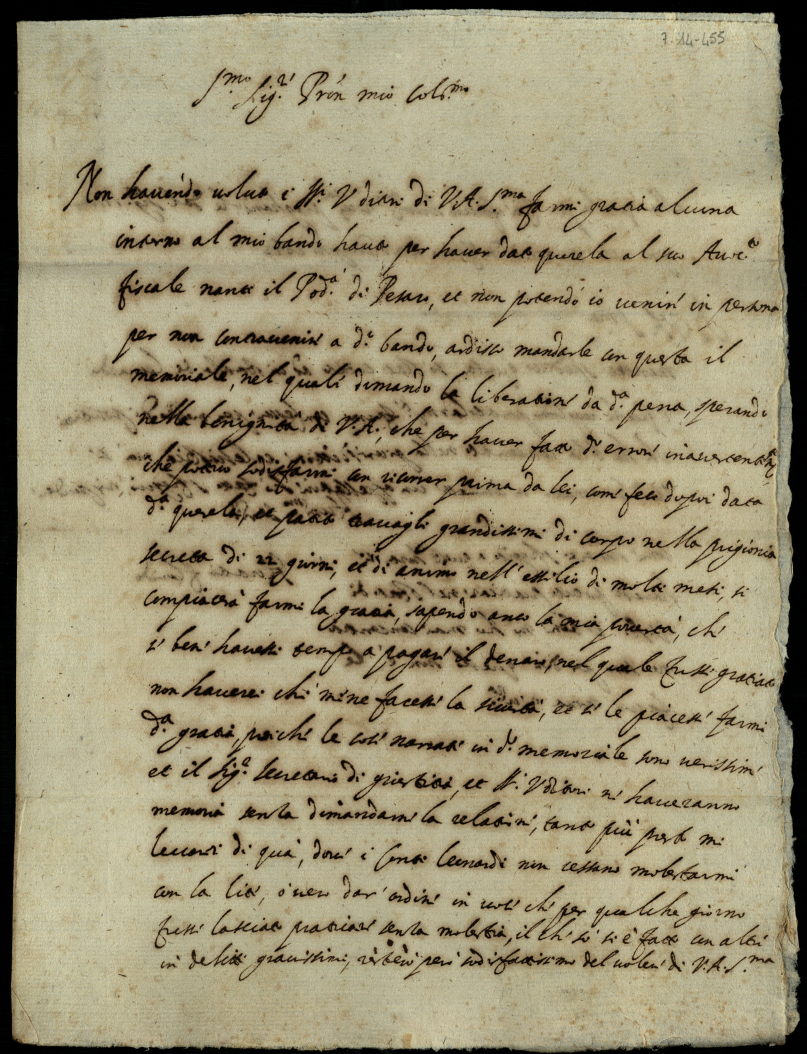 7.14-455
S.mo Sig.r Prõn mio Col.mo
Non havendo voluto i SS.ri Uditori di V.A. S.ma farmi gratia alcuna
intorno al mio bando havuto per haver dato querela al suo Avv.to
fiscale nanti il Pod.à di Pesaro, et non potendo io venire in persona
per non contravenire a d.o bando, ardisco mandarle con questa il
memoriale, nel quale dimando la liberatione da d.a pena, sperando
nella benignità di V.A., che per haver fatto d.o errore inavertentem.te
che potevo sodisfarmi con ricorrer prima da lei, come feci dopoi data
d.a querela, et patito travagli grandissimi di corpo nella prigionia
secreta di 22 giorni, et di animo nell'essilio di molti mesi, si
compiacerà farmi la gratia, sapendo anco la mia povertà, che
se bene havessi tempo a pagare il denaro, nel quale fussi gratiato
non haverei chi me ne facesse la sicurtà, et se le piacesse farmi
d.a gratia, perche le cose narrate in d.o memoriale sono verissime
et il Sig.r Secretario di giustitia, et SS.ri Uditori ne haveranno
memoria senza dimandarne la relatione, tanto più presto mi
leverei di quà, dove i Conti Leonardi non cessano molestarmi
con la lite, o vero dar' ordine in voce che per qualche giorno
fussi lasciato praticare senza molestia, il che se si è fatto con altri
in delitti gravissimi, però sodisfattissimo del voler di V.A. S.ma